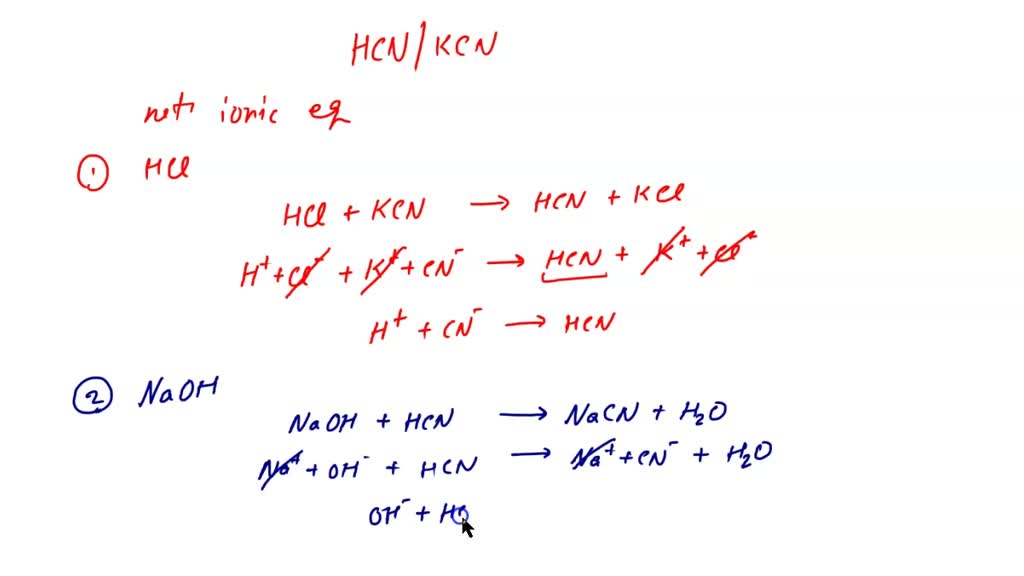 HCN/KCN
net ionic eq
① HCl
HCl + KCN → HCN + KCl
H⁺ + Cl⁻ + K⁺ + CN⁻ → HCN + K⁺ + Cl⁻
H⁺ + CN⁻ → HCN
② NaOH
NaOH + HCN → NaCN + H₂O
Na⁺ + OH⁻ + HCN → Na⁺ + CN⁻ + H₂O
OH⁻ + HC